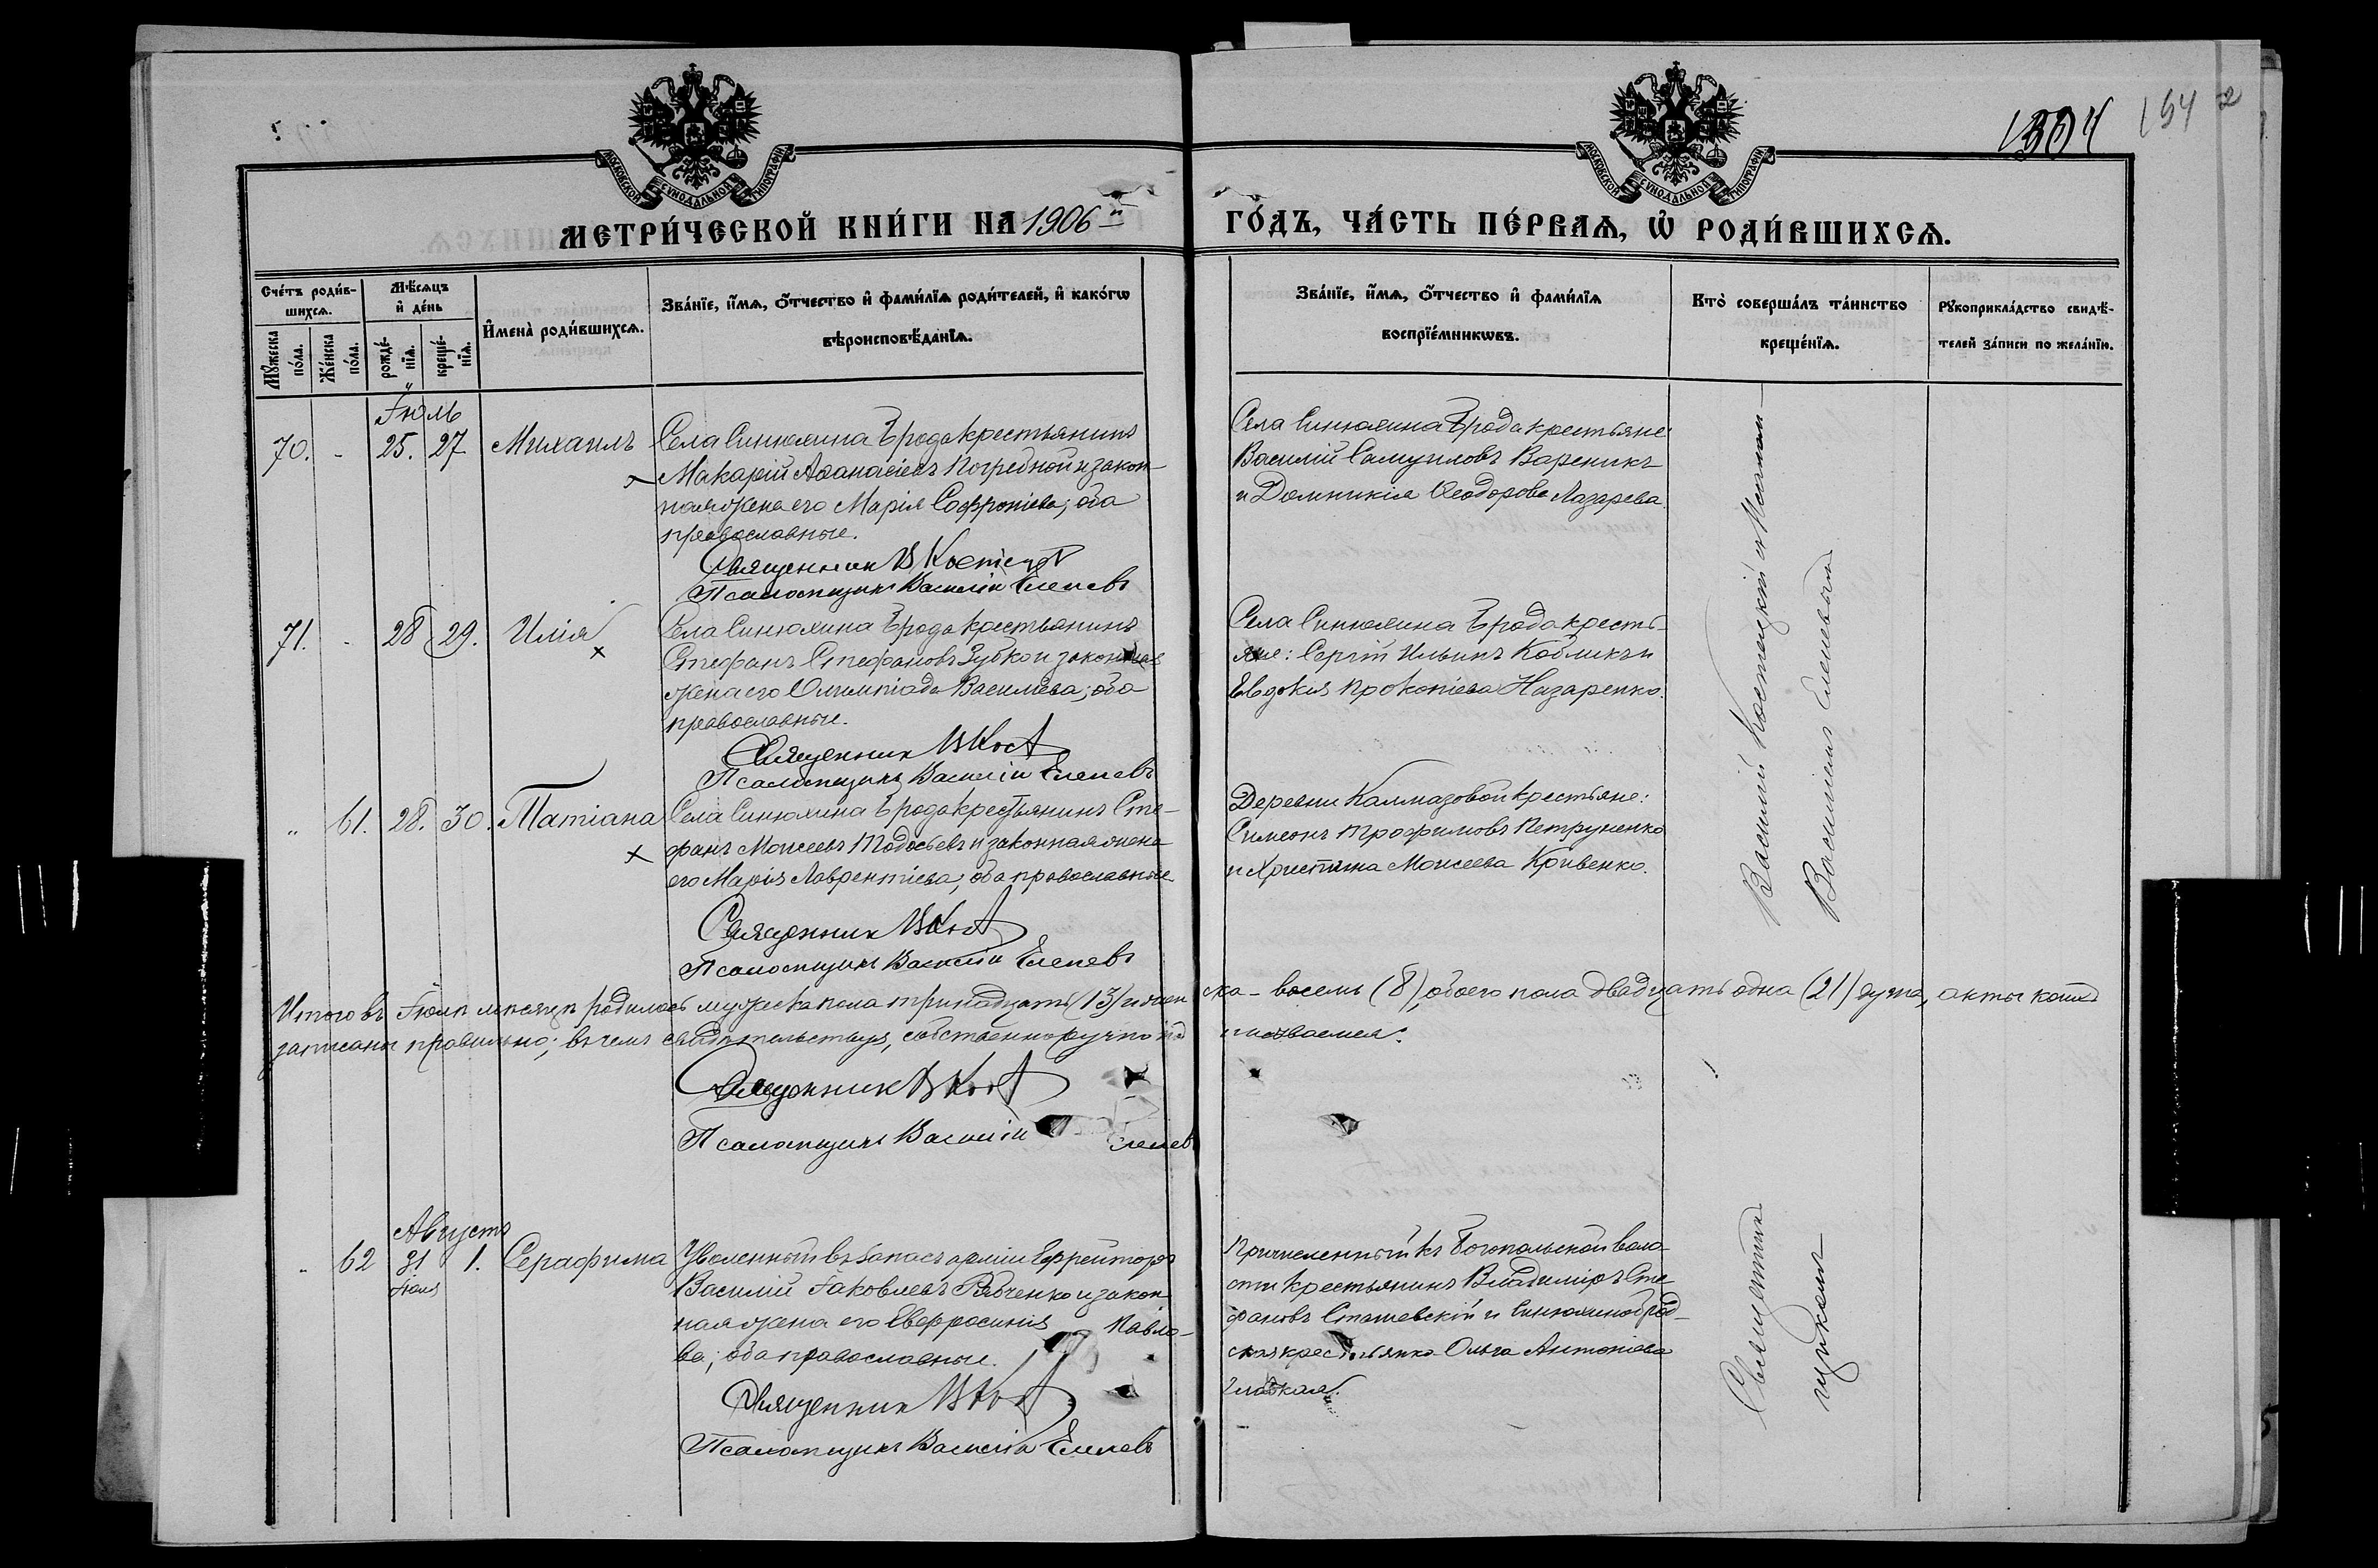 1304
154
МОСКОВСКОЙ СУНОДАЛЬНОЙ ТИПОГРАФІИ
МОСКОВСКОЙ СУНОДАЛЬНОЙ ТИПОГРАФІИ
МЕТРИ́ЧЕСКОЙ КНИ́ГИ НА 1906 й ГО́ДЪ, ЧА́СТЬ ПЕ́РВАѦ, Ѡ҆ РОДИ́ВШИХСѦ.
Сче́тъ роди́в-
шихсѧ.
Мꙋ́жеска по́ла.
Же́нска по́ла.
Мѣ́сѧцъ
и҆ де́нь
рожде́-
нїѧ.
креще́-
нїѧ.
И҆мена̀ роди́вшихсѧ.
Зва́нїе, и҆́мѧ, ѻ҆́тчество и҆ фами́лїѧ роди́телей, и҆ како́гѡ
вѣроисповѣ́данїѧ.
Зва́нїе, и҆́мѧ, ѻ҆́тчество и҆ фами́лїѧ
воспрїе́мникѡвъ.
Кто̀ соверша́лъ та́инство
креще́нїѧ.
Рꙋкоприкла́дство свидѣ́-
телей за́писи по жела́нїю.
Іюль
70. - 25. 27 Михаилъ
Села Синюхина Брода крестьянинъ
Макарій Аѳанасіевъ Погребной и закон-
ная жена его Марія Софроніева; оба
православные.
Священникъ В Костецкі
Псаломщикъ Василій Еленевъ
Села Синюхина Брода крестьяне
Василій Самуиловъ Вареникъ
и Домникія Ѳеодорова Лазарева.
71. - 28 29. Илія
Села Синюхина Брода крестьянинъ
Стефанъ Стефановъ Зубко и законная
жена его Олимпіада Васильева; оба
православные.
Священникъ В Кост
Псаломщикъ Василій Еленевъ
Села Синюхина Брода кресть-
яне: Сергій Ильинъ Кобликъ и
Евдокія Прокопіева Назаренко.
" 61. 28. 30. Татіана
Села Синюхина Брода крестьянинъ Сте-
фанъ Моисеевъ Тодосьевъ и законная жена
его Марія Лаврентіева; оба православные
Священникъ В Кост
Псаломщикъ Василій Еленевъ
Деревни Калмазовой крестьяне:
Симеонъ Трофимовъ Петруненко
и Христина Моисеева Кривенко.
Василій Костецкій съ Псалом-
Василіемъ Еленевымъ
Итого въ Іюлѣ мѣсяцѣ родилось мужеска пола тринадцать (13) и женска - восемь (8), обоего пола двадцать одна (21) душа, акты коихъ
записаны правильно; въ чемъ свидѣтельствуя, собственноручно подписываемся:
Священникъ В Кост
Псаломщикъ Василій Еленевъ
Августъ
" 62 31 1. Серафима
Іюля
Уволенный въ запасъ арміи Ефрейторъ
Василій Іаковлевъ Рябченко и закон
ная жена его Евфросинія Павло-
ва; оба православные.
Священникъ В Кост
Псаломщикъ Василій Еленевъ
Причисленный къ Богопольской воло-
сти крестьянинъ Владиміръ Сте-
фановъ Сташевскій и Синюхиноброд-
ская крестьянка Ольга Антоніева
Гладкая.
Священникъ
щикомъ